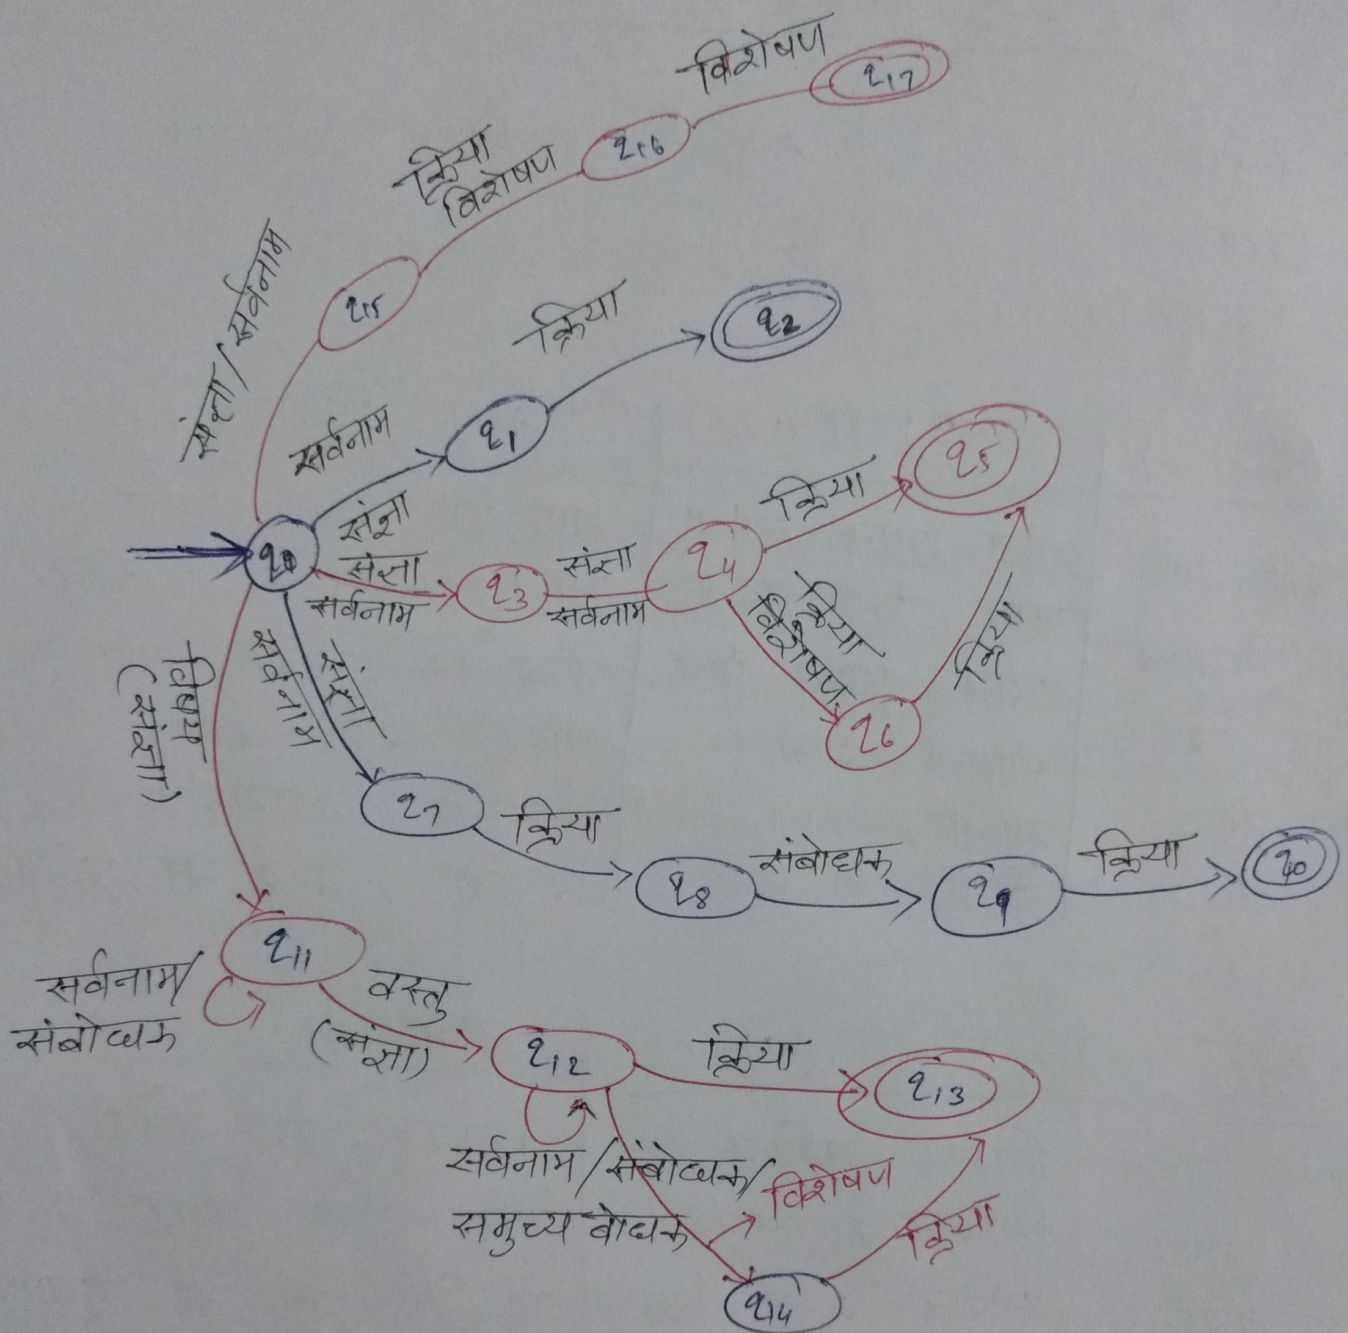 विशेषण
q17
q16
क्रिया
विशेषण
q15
संज्ञा/सर्वनाम
क्रिया
q2
सर्वनाम
q1
संज्ञा
q0
संज्ञा
सर्वनाम
q3
संज्ञा
सर्वनाम
q4
क्रिया
q5
क्रिया
विशेषण
q6
क्रिया
सर्वनाम
संज्ञा
q7
क्रिया
q8
संबोधक
q9
क्रिया
विषय
(संज्ञा)
q11
सर्वनाम/
संबोधक
वस्तु
(संज्ञा)
q12
क्रिया
q13
सर्वनाम/संबोधक/
समुच्य बोधक
विशेषण
क्रिया
q14